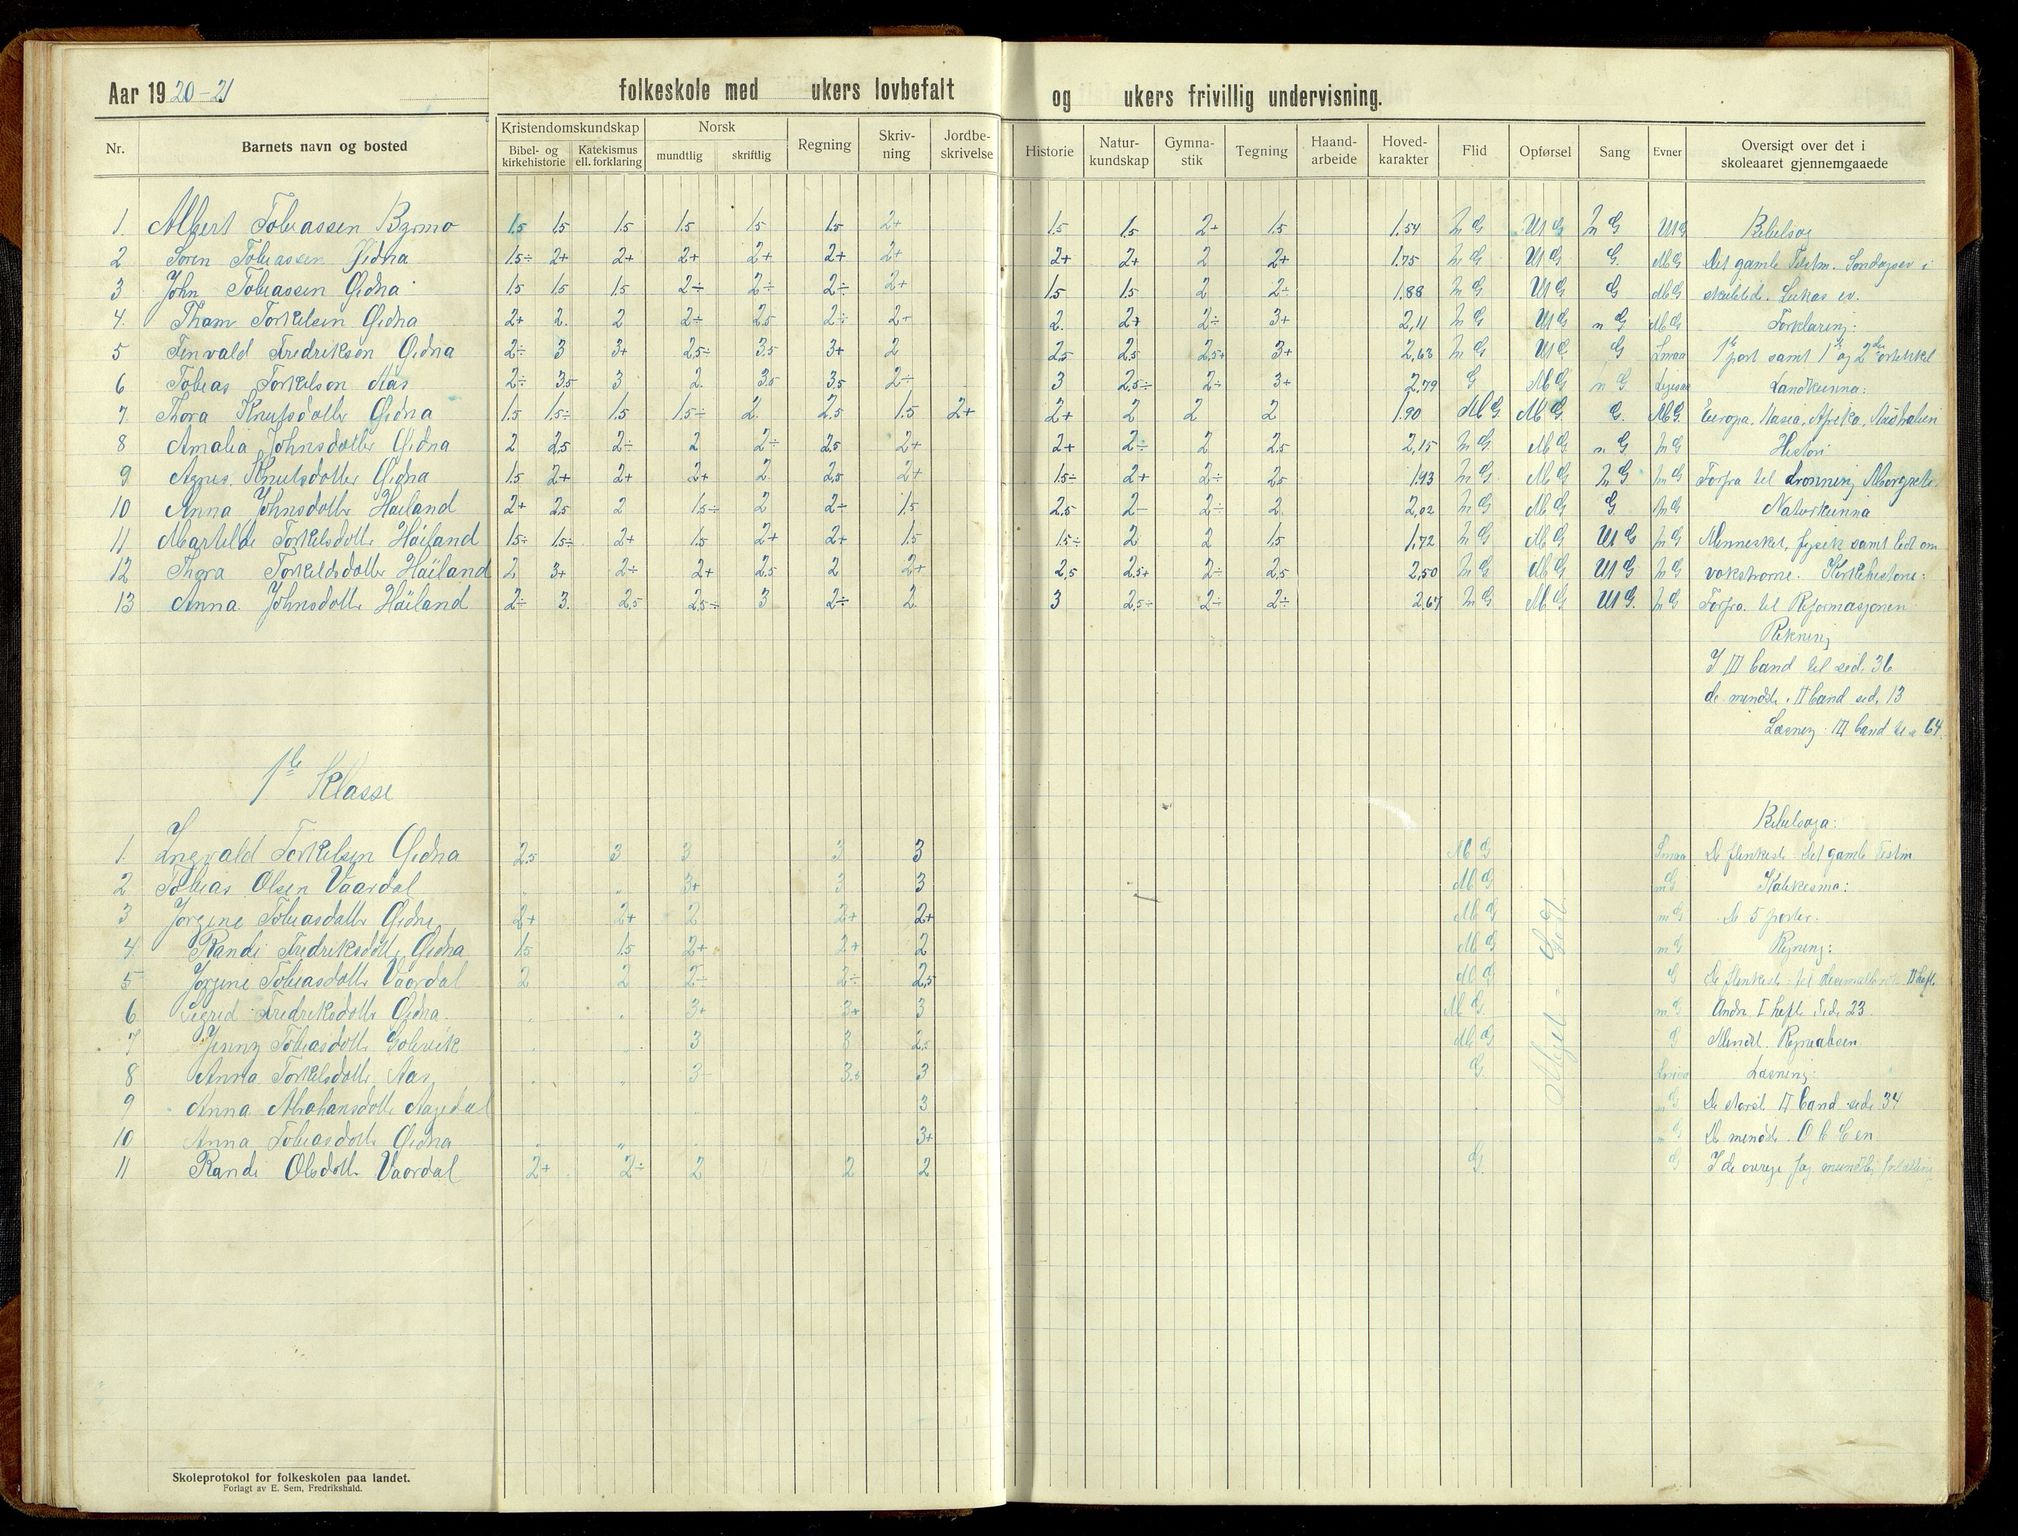 Aar 1920-21 folkeskole med ukers lovbefalt og ukers frivillig undervisning.
Nr. Barnets navn og bosted Kristendomskundskap Bibel- og kirkehistorie Katekismus ell. forklaring Norsk mundtlig skriftlig Regning Skrivning Jordbeskrivelse Historie Naturkundskap Gymnastik Tegning Haandarbeide Hovedkarakter Flid Opførsel Sang Evner Oversigt over det i skoleaaret gjennemgaaede
1. Albert Tobiassen Bymo 1.5 1.5 1.5 1.5 1.5 1.5 2+ 1.5 1.5 2+ 1.5 1.54 M G Ut G M G Ut G Bibelsog
2 Søren Tobiassen Øidna 1.5÷ 2+ 2+ 2+ 2+ 2+ 2+ 2+ 2+ 2 2+ 1.75 M G Ut G G. M G Det gamle Testm. Søndagsev i
3 John Tobiassen Øidna 1.5 1.5 1.5 2÷ 2÷ 2÷ 2+ 1.5 1.5 2 2÷ 1.88 M G Ut G G M G Lukas ev.
4. Tham Torkelsen Øidna 2+ 2. 2 2÷ 2.5 2÷ 2+ 2. 2+ 2÷ 3+ 2,11 M G Ut G n G M G Forklaring:
5 Finvald Fredriksen Øidna 2÷ 3 3+ 2,5÷ 3.5 3+ 2 2,5 2,5 2,5+ 3+ 2,63 M G Ut G G Smaa 1ste part samt 1ste og 2den artikkel
6 Tobias Torkelson Aas 2÷ 3.5 3 2. 3.5 3.5 2÷ 3 2,5÷ 2÷ 3+ 2,79 G M G n G Landkunna:
7. Thora Knutsdotter Øidna 1.5 1.5÷ 1.5 1.5÷ 2. 2,5 1.5 2+ 2+ 2 2 2 1.90 M G M G G. M G. Europa, Asia, Afrika, Australien
8 Amalia Johnsdotter Øidna 2 2,5 2÷ 2 2÷ 2,5 2+ 2+ 2÷ 2 2,5 2,15 M G M G n G M G Histori
9 Agnes Knutsdotter Øidna 1.5 2+ 2+ 2+ 2 2,5 2+ 1.5÷ 2+ 2÷ 2,5 1.93 M G M G M G M G Forfra til dronning Margrete
10 Anna Johnsdotter Hailand 2+ 2,5 2 1.5÷ 2 2÷ 1.5 2,5 2÷ 2÷ 2. 2,02 M G M G G. M G Naturkunna
11 Martelde Torkelsdotte Håiland 1.5÷ 1.5÷ 2+ 1.5 2+ 2+ 1.5 1.5÷ 2 2 1.5 1.72 M G M G Ut G M G Mennesket, fysik samt lidt om
12 Thora Torkeldsdotter Håiland 2 3+ 2÷ 2+ 2,5 2 2+ 2,5 2,5+ 2÷ 2,5 2,50 M G M G Ut G M G Kirkehistorie:
13 Anna Johnsdotte Håiland 2÷ 3. 2,5 2,5÷ 3 2÷ 2. 3 2,5÷ 2÷ 2÷ 2,67 M G M G Ut G. M G Forfra til Reformasjonen
Rekning
I III band til side 36
de mindste II band side 13
Læsning: III band til s 64.
1ste Klasse
Bibelsoga:
1. Ingvald Torkelsen Øidna 2.5 3 3 3 3 M G Smaa De flenkeste Det gamle Testm
2 Tobias Olsen Vaardal " 3+ 3 3 M G m G Katekesma:
3 Jorgine Tobiasdotter Øidne 2+ 2+ 2 2+ 2+ M G m G De 5 parter.
4. Randi Fredriksdotte Øidna 1.5 1.5 2+ 2+ 2 M G m G Regning:
5 Jorgine Tobiasdotter Vaardal 2 2 2÷ 2÷ 2,5 M G G De flenkeste til II heft.
6 Sigrid Fredriksdotte Øidna. " " 3+ 3+ 3 M G. m G Andre I hefte side 23
7 Jenny Tobiasdotte " " 3 3 2,5 M G G Mindst.
8 Anna Torkelsdotte Aas " " 3- 3.5 3 G. Smaa Læsning:
9 Anna Abrahansdotte Aagedal 3 m G De størst II band side 34
10 Anna Tobiasdotte Øidna " " 3+ m G De mindste. Abc en
11 Randi Olsdotte Vaardal 2+ 2÷ 2 2 2 G. G I de øvrige fag mundtlig
Meget - Godt
Skoleprotokol for folkeskolen paa landet.
Forlagt av E. Sem, Fredrikshald.